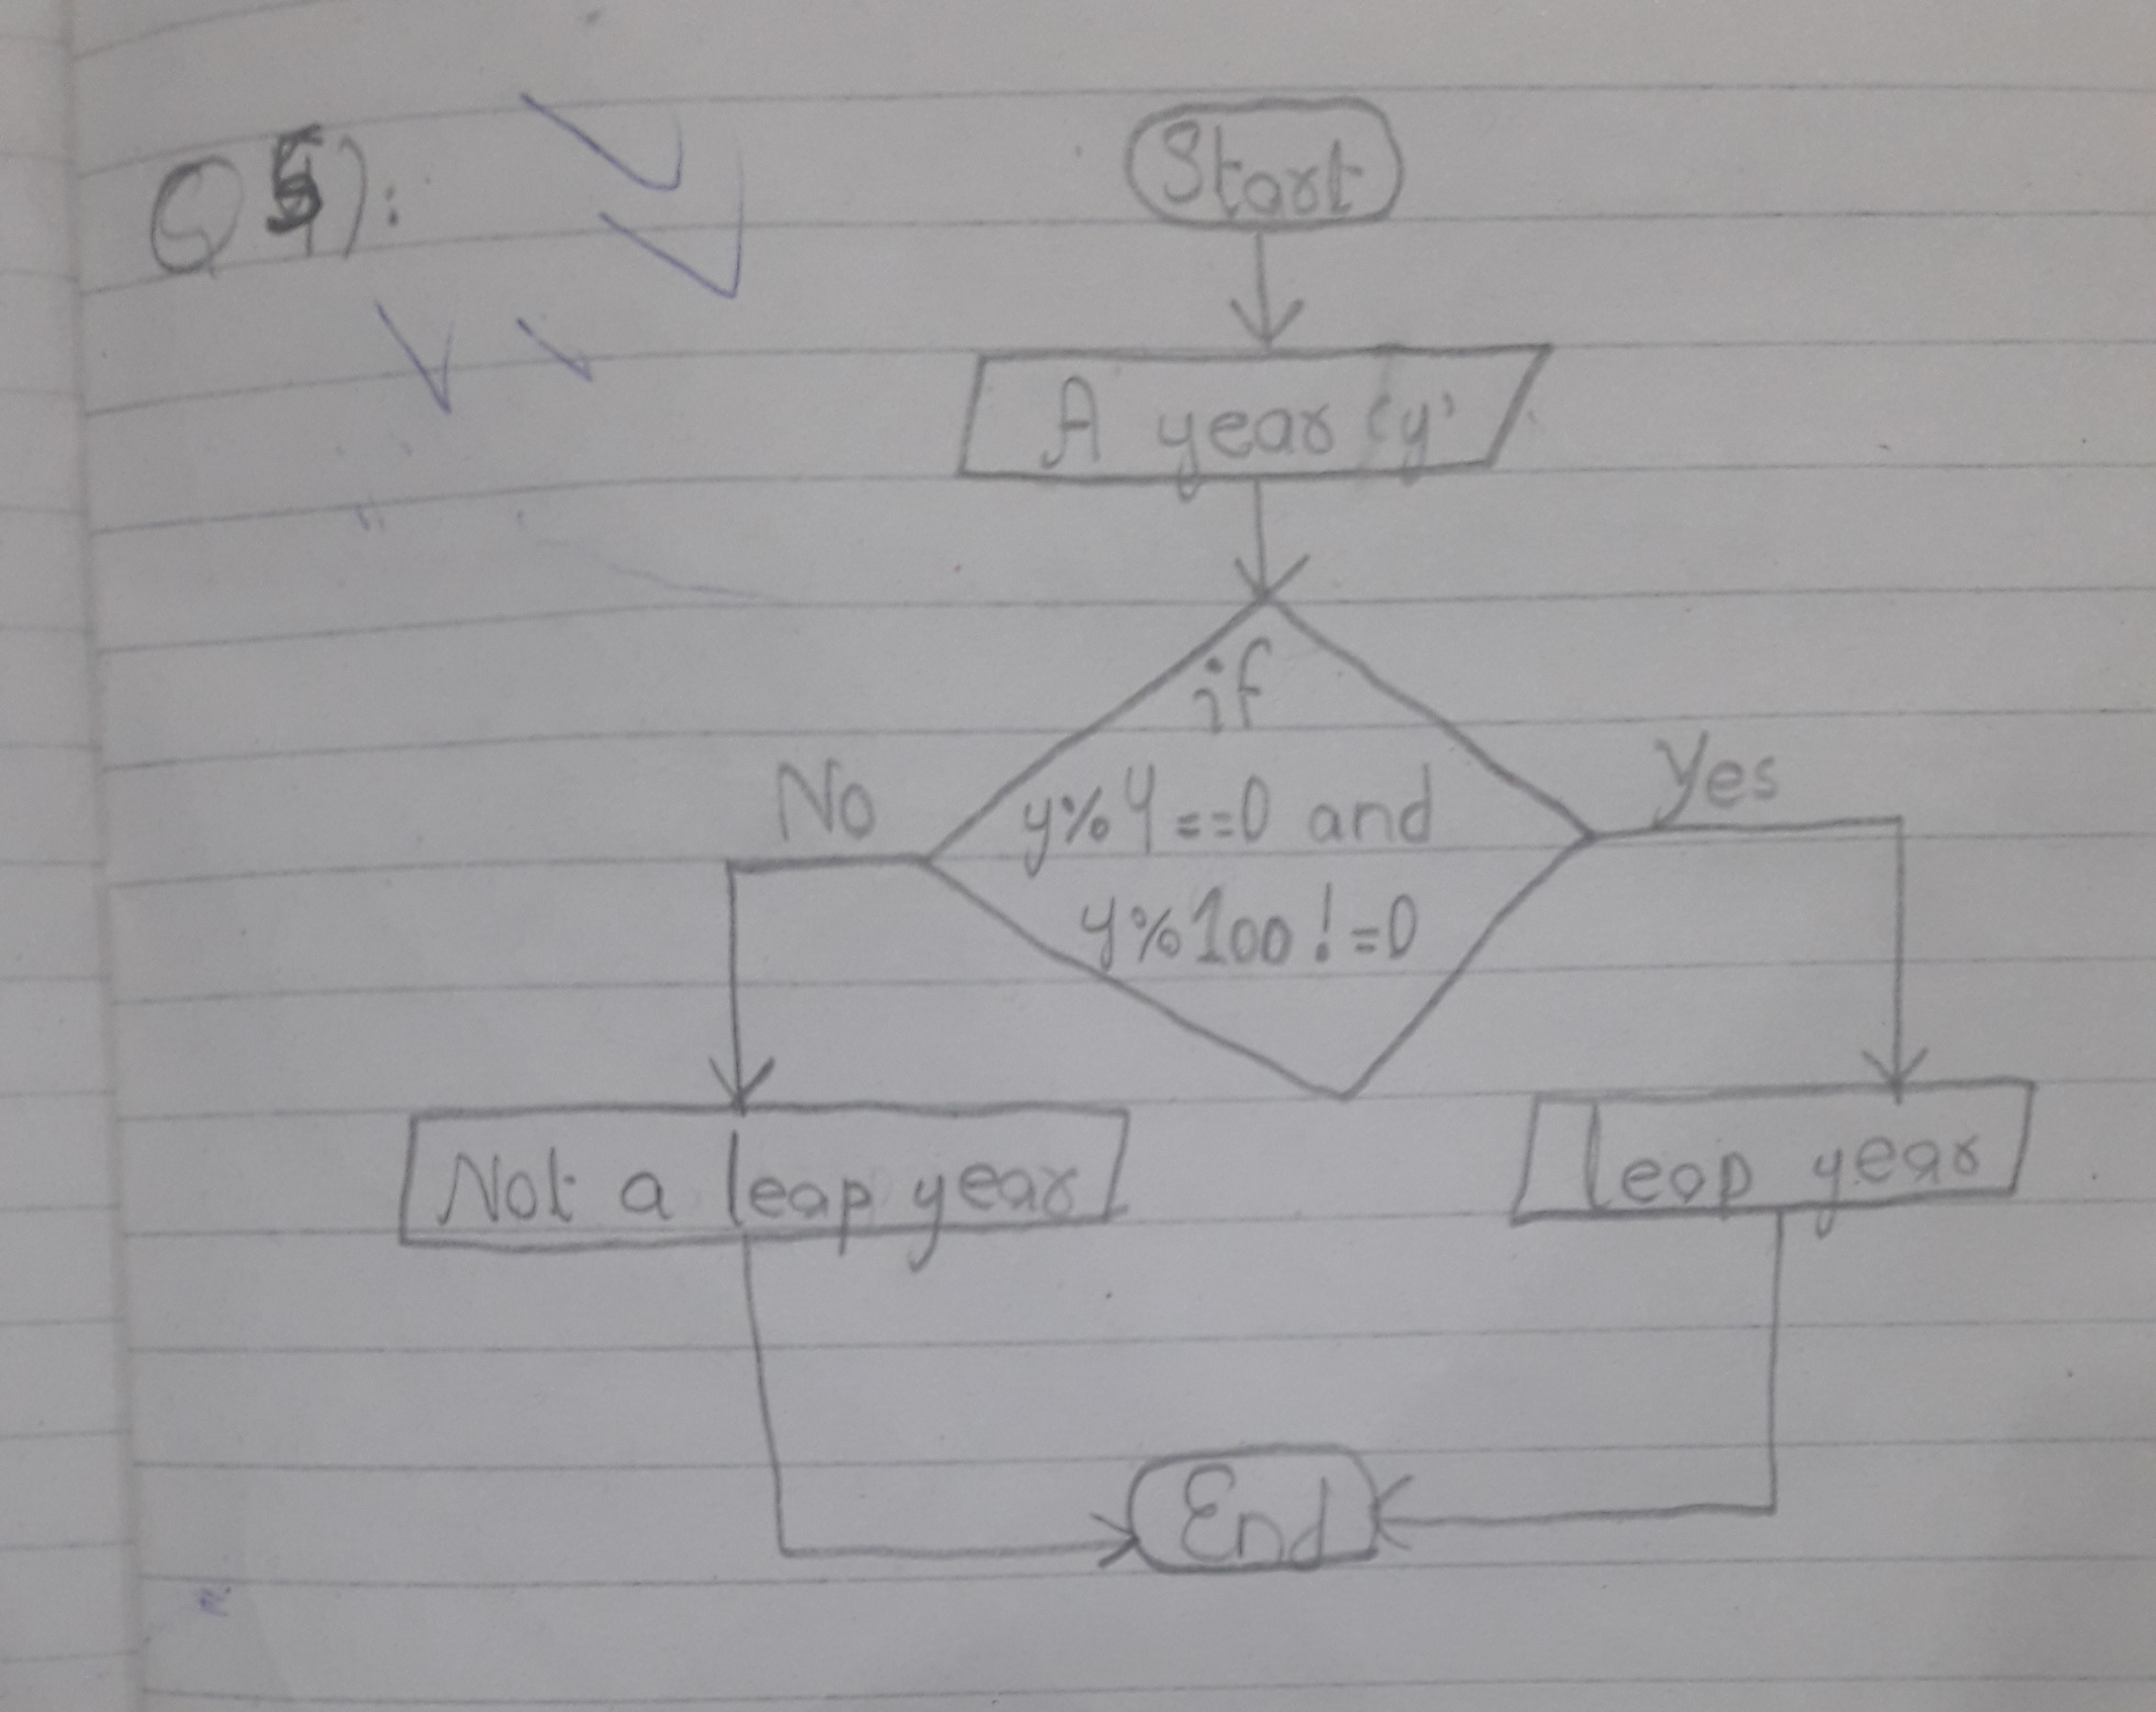 Q5):
Start
A year 'y'
if
y%4==0 and
y%100!=0
No
Yes
Not a leap year
leap year
End